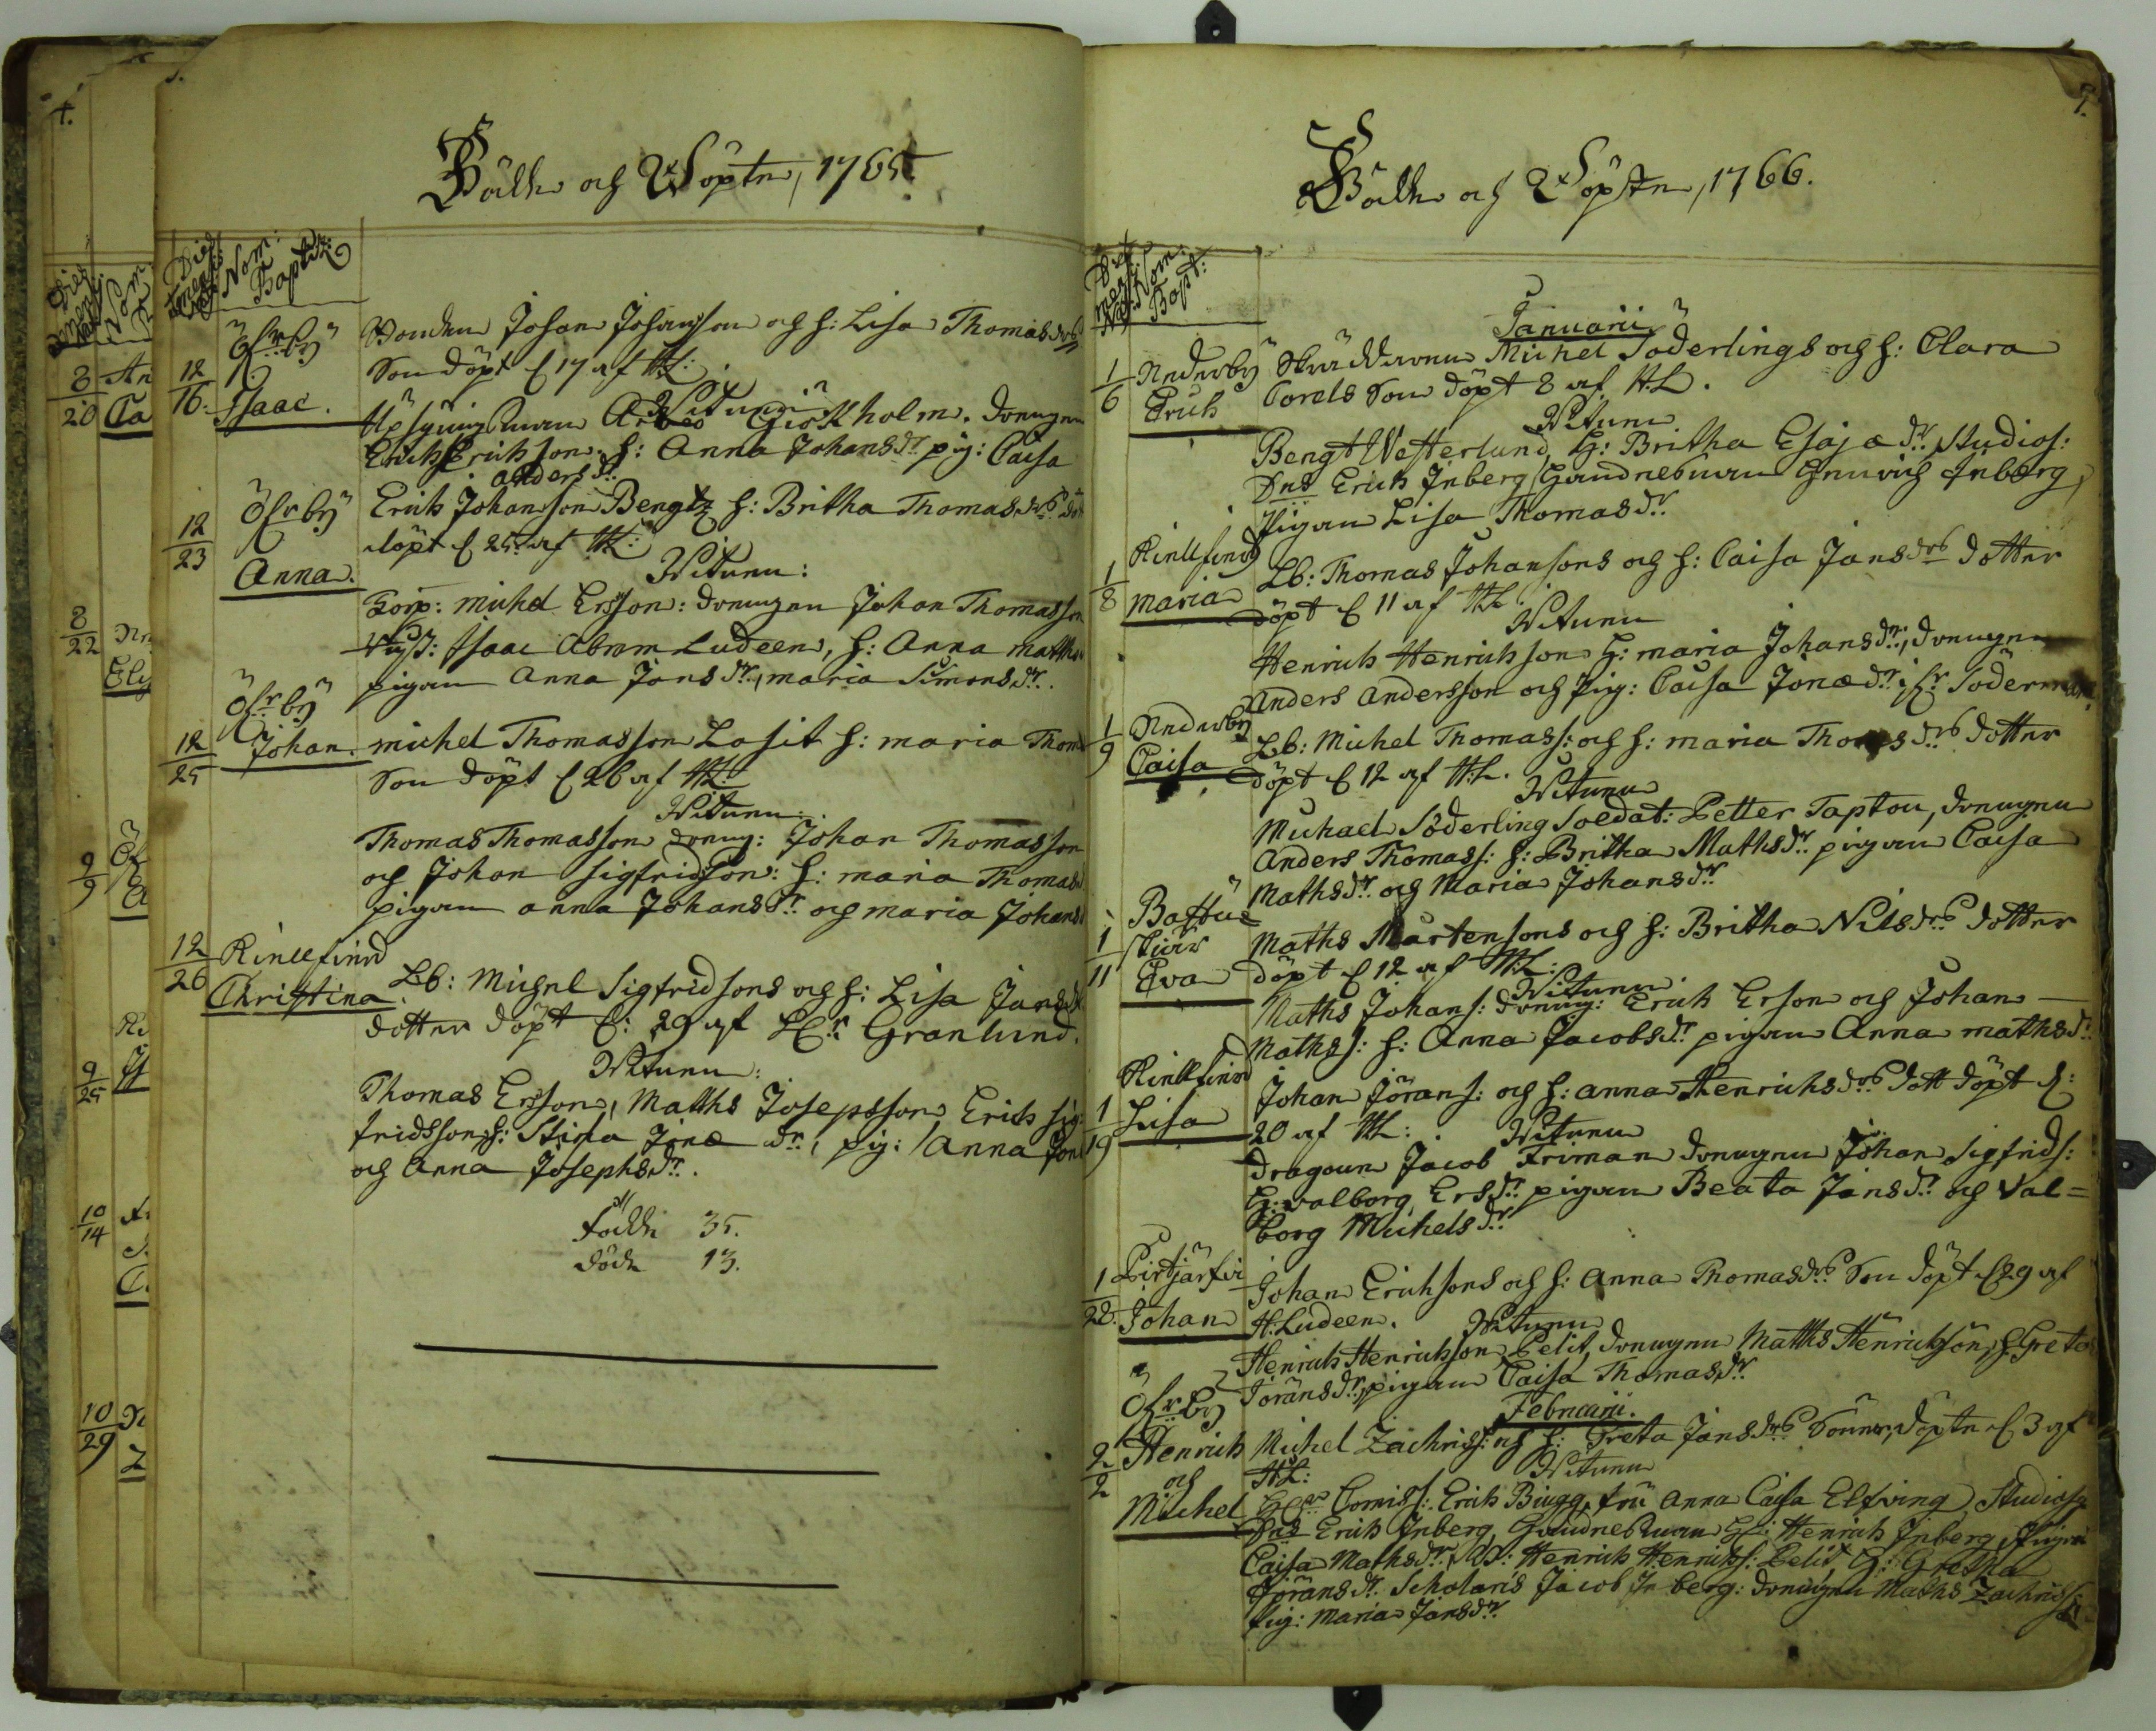 Födde och Döpte, 1765.
Nom: Baptiz:
Öfwerby
12
16.
Isaac.
Bonden Johan Johansson och h: Lisa Thomasdrs
Son döpt d 17 af HL:
Witnen
Gist holm. Drengen
Erich Erichson. h: Anna Johansdr. pig: Caisa
Andersdr.
Öfwerby
12
23
Anna.
Erich Johansson Bengtz h: Britha Thomasdrs
döpt d 25 af HL:
Witnen:
Corp: Michel Ersson: Drengen Johan Thomasson
Isaac Abram Ludeen, h: Anna Maths
pigan Anna Jansdr., Maria Simonsdr.
Öfwerby
12
25
Johan.
Michel Thomasson Lasit h: Maria Thom
Son döpt d 26 af HL
Witnen.
Thomas Thomasson Dreng: Johan Thomasson
och Johan Sigfridson: h: Maria Thomasd
pigan Anna Johansdr. och Maria Johans
12
26
Christina.
Lb: Michel Sigfridsons och h: Lisa Jansdr
dotter döpt d: 29 af Hr Granlund.
Witnen:
Thomas Ersson, Maths Josepsson, Erich Sig-
fridsson, h: Stina Jonæ dr, pig: Anna Jon
och Anna Josephsdr.
födde 35.
döde 13.
Födde och Döpte, 1766.
Nom: Bapt:
Januarii
1
6
Nederby
Erich
Skräddaren Michel Söderlings och h: Clara
Carels Son döpt 8 af H.L.
Witnen
Bengt Westerlund, h: Britha Esajædr, Studios:
Dns Erich Inberg, Handelsman Henrich Inberg,
Pigan Lisa Thomasdr.
1
8
Maria
Lb: Thomas Johansons och h: Caisa Jansdrs dotter
döpt d 11 af HL
Witnen
Henrich Henrichson h: Maria Johansdr., drengen
Anders Andersson och Pig: Caisa Jonædr.
1
9
Nederby
Caisa
Lb: Michel Thomass: och h: Maria Thomsdrs dotter
döpt d 12 af H.L.
Witnen
Michael Söderling Soldat: Petter Taptou, drengen
Anders Thomass: h: Britha Mathsdr. pigan Caisa
Mathsdr. och Maria Johansdr.
1
11
Eva
Maths Mårtensons och h: Britha Nilsdrs dotter
döpt d 12 af HL:
Witnen
Maths Johans: dreng: Erich Erson och Johan
Mathss: h: Anna Jacobsdr. pigan Anna Mathsdr.
1
19
Lisa
Johan Jörans: och h: Anna Henrichsdrs dott döpt d:
20 af HL: Witnen
Dragoun Jacob Friman drengen Johan Sigfrids:
h: Valborg Ersdr. pigan Beata Jansdr. och Val=
borg Michelsdr.
1
28.
Pirtjärfvi
Johan
Johan Erichsons och h: Anna Thomasdrs Son döpt d 29 af
H: Ludeen. Witnen
Henrich Henrichson Pelit, drengen Maths Henrichson, h: Greta
Joransdr., pigan Caisa Thomasdr.
Februarii.
Öfwerby
2
2
Henrich
och
Michel
Michel Zachriss: och h: Greta Jansdrs Söner, döpte d 3 af
HL: Witnen
Comiss: Erich Biugg, fru Anna Caisa Elfving, Studios:
Dns Erich Inberg, Handelsman Henrich Inberg, Pigan
Caisa Mathsdr., Henrich Henrichs: Pelit, h: Gretha
Joransdr. Scholaris Jacob Inberg: drengen Maths Zachriss
Pig: Maria Jansdr.